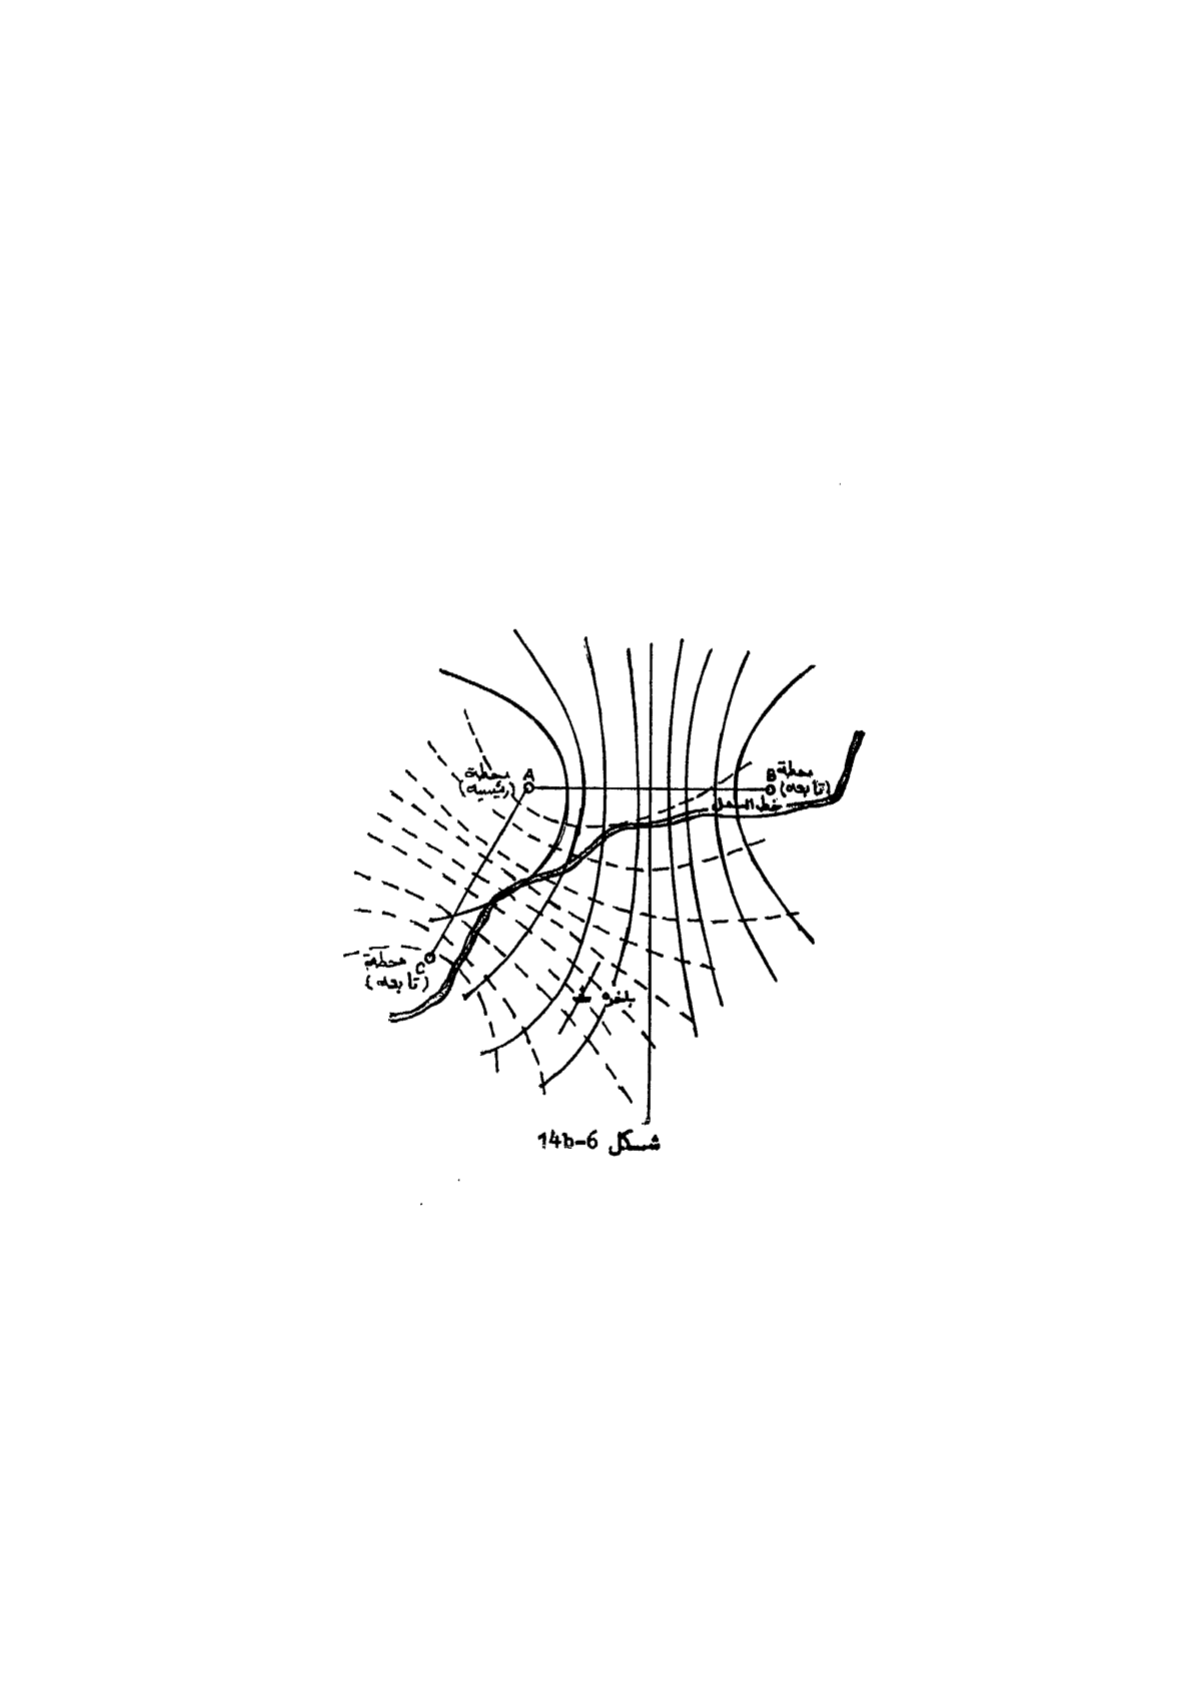 A
محطة
(رئيسيه)
B
محطة
(تابعه)
خط الساحل
C
محطة
(تابعه)
شكل 6-14b